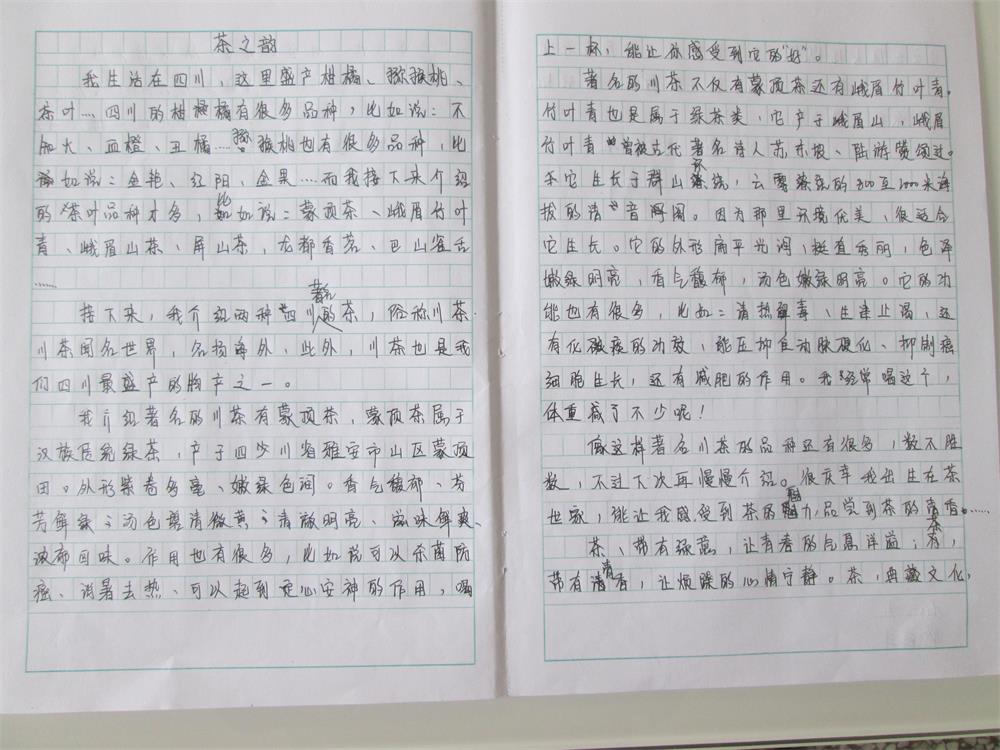 茶之韵
我生活在四川，这里盛产柑橘、猕猴桃、
茶叶……四川的柑橘有很多品种，比如说：不
知火、血橙、丑橘……猕猴桃也有很多品种，比
如说：金艳、红阳、金果……而我接下来介绍
的茶叶品种才多，比如说：蒙顶茶、峨眉竹叶
青、峨眉山茶、屏山茶，龙都香茗、巴山雀舌
……
接下来，我介绍两种四川著名的茶，俗称川茶。
川茶闻名世界，名扬海外，此外，川茶也是我
们四川最盛产的物产之一。
我介绍著名的川茶有蒙顶茶，蒙顶茶属于
汉族传统绿茶，产于四川省雅安市山区蒙顶
山。外形紧卷多毫、嫩绿色润。香气馥郁、芬
芳鲜绿；汤色碧清微黄；清澈明亮、滋味鲜爽、
浓郁回味。作用也有很多，比如说可以杀菌防
癌、消暑去热、可以起到定心安神的作用，喝
上一杯，能让你感受到它的"好"。
著名的川茶不仅有蒙顶茶还有峨眉竹叶青。
竹叶青也是属于绿茶类，它产于峨眉山，峨眉
竹叶青曾被古代著名诗人苏东坡、陆游赞颂过。
它生长于群山环绕，云雾缭绕的800至1200米海
拔的清音阁。因为那里环境优美，很适合
它生长。它的外形扁平光润，挺直秀丽，色泽
嫩绿明亮，香气馥郁，汤色嫩绿明亮。它的功
能也有很多，比如：清热解毒、生津止渴，还
有化痰的功效，能压抑自动脉硬化、抑制癌
细胞生长，还有减肥的作用。我经常喝这个，
体重减了不少呢！
像这样著名川茶的品种还有很多，数不胜
数，不过下次再慢慢介绍。很庆幸我出生在茶
世家，能让我感受到茶的魅力，品尝到茶的清香……
茶、带有绿意，让青春的气息洋溢；茶，
带有清香，让烦躁的心情宁静。茶，典藏文化，